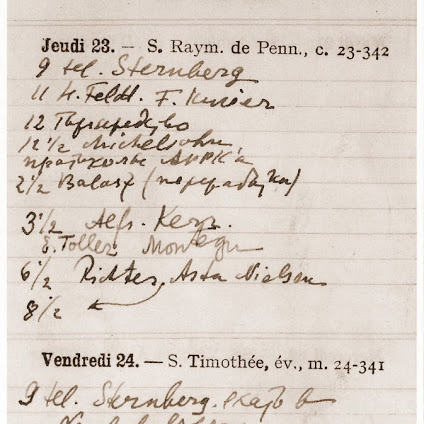 Jeudi 23. — S. Raym. de Penn., c. 23-342
9 tel. Sternberg
11 H. Feld. F.
12 Торгпредство
12 1/2 Michelsohn,
протоколы
2 1/2 Balasz (переработка)
3 1/2 Alfr. Kerr.
E. Toller Montegu
6 1/2 Richter, Asta Nielsen
8 1/2
Vendredi 24. — S. Timothée, év., m. 24-341
9 tel. Sternberg.